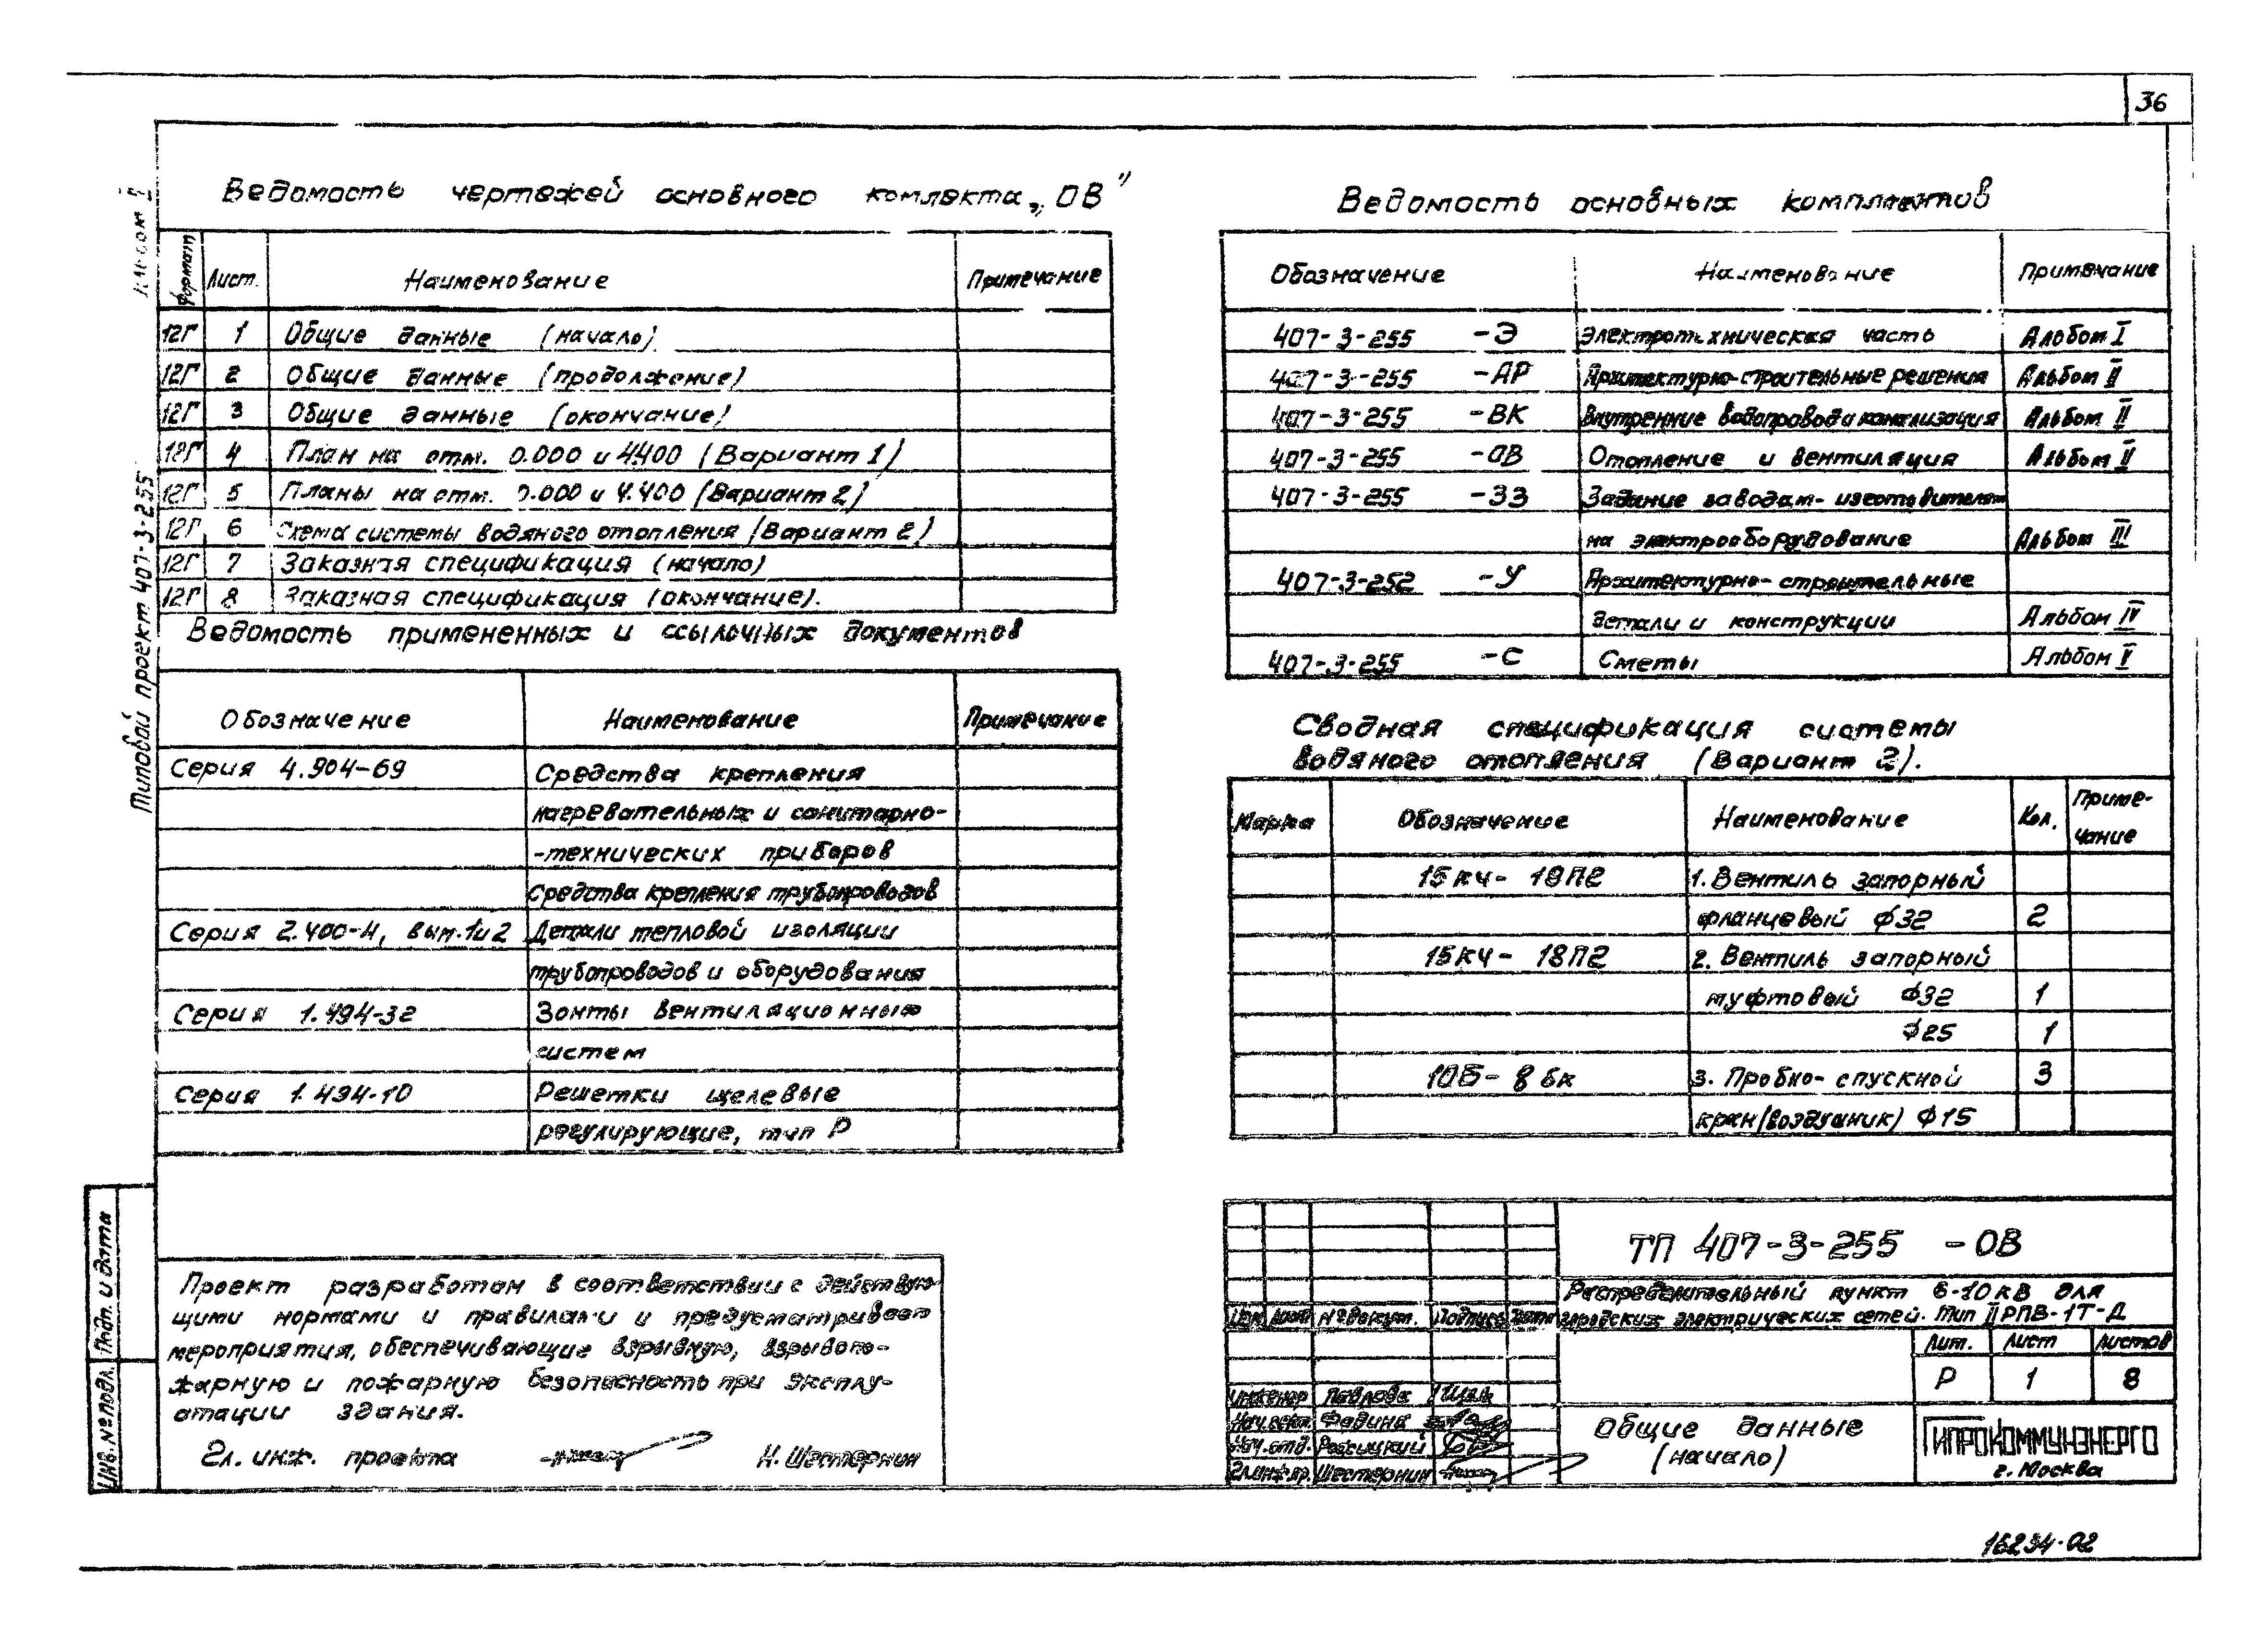 36
Ведомость чертежей основного комплекта „ОВ"
Формат Лист. Наименование Примечание
12Г 1 Общие данные (начало)
12Г 2 Общие данные (продолжение)
12Г 3 Общие данные (окончание)
12Г 4 План на отм. 0.000 и 4.400 (Вариант 1)
12Г 5 Планы на отм. 0.000 и 4.400 (Вариант 2)
12Г 6 Схема системы водяного отопления (Вариант 2)
12Г 7 Заказная спецификация (начало)
12Г 8 Заказная спецификация (окончание).
Ведомость примененных и ссылочных документов
Обозначение Наименование Примечание
Серия 4.904-69 Средства крепления
нагревательных и санитарно-
-технических приборов
Средства крепления трубопроводов
Серия 2.400-4, вып.1и2 Детали тепловой изоляции
трубопроводов и оборудования
Серия 1.494-32 Зонты вентиляционных
систем
Серия 1.494-10 Решетки щелевые
регулирующие, тип Р
Проект разработан в соответствии с действую-
щими нормами и правилами и предусматривает
мероприятия, обеспечивающие взрывную, взрывопо-
жарную и пожарную безопасность при эксплу-
атации здания.
Гл. инж. проекта Н. Шестернин
Ведомость основных комплектов
Обозначение Наименование Примечание
407-3-255 -Э Электротехническая часть Альбом I
407-3-255 -АР Архитектурно-строительные решения Альбом II
407-3-255 -ВК Внутренние водопровод и канализация Альбом II
407-3-255 -ОВ Отопление и вентиляция Альбом II
407-3-255 -ЗЗ Задание заводам-изготовителям
на электрооборудование Альбом III
407-3-252 -У Архитектурно-строительные
детали и конструкции Альбом IV
407-3-255 -С Сметы Альбом V
Сводная спецификация системы
водяного отопления (Вариант 2).
Марка Обозначение Наименование Кол. Приме-
чание
15кч-18П2 1. Вентиль запорный
фланцевый ф32 2
15кч-18П2 2. Вентиль запорный
муфтовый ф32 1
ф25 1
10Б-8бк 3. Пробно-спускной 3
кран(воздушник) ф15
ТП 407-3-255 -ОВ
Распределительный пункт 6-10кВ для
городских электрических сетей. Тип II РПВ-1Т-Д
Изм Лист №докум. Подпись Дата
Лит. Лист Листов
Р 1 8
Инженер Павлова
Нач.сект. Фадина
Нач.отд.
Гл.инж.пр. Шестернин
Общие данные
(начало)
ГИПРОКОММУНЭНЕРГО
г. Москва
16234-02
Типовой проект 407-3-255 Альбом II
Подп. и дата
Инв. №подл.